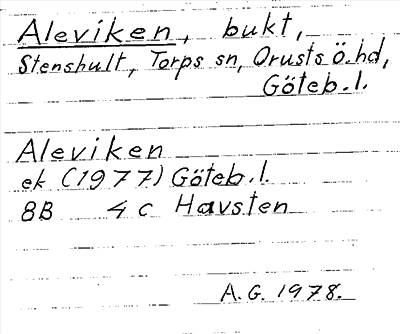 Aleviken, bukt,
Stenshult, Torps sn, Orusts ö. hd,
Göteb. l.
Aleviken
ek (1977) Göteb. l.
8B 4c Havsten
A.G. 1978.